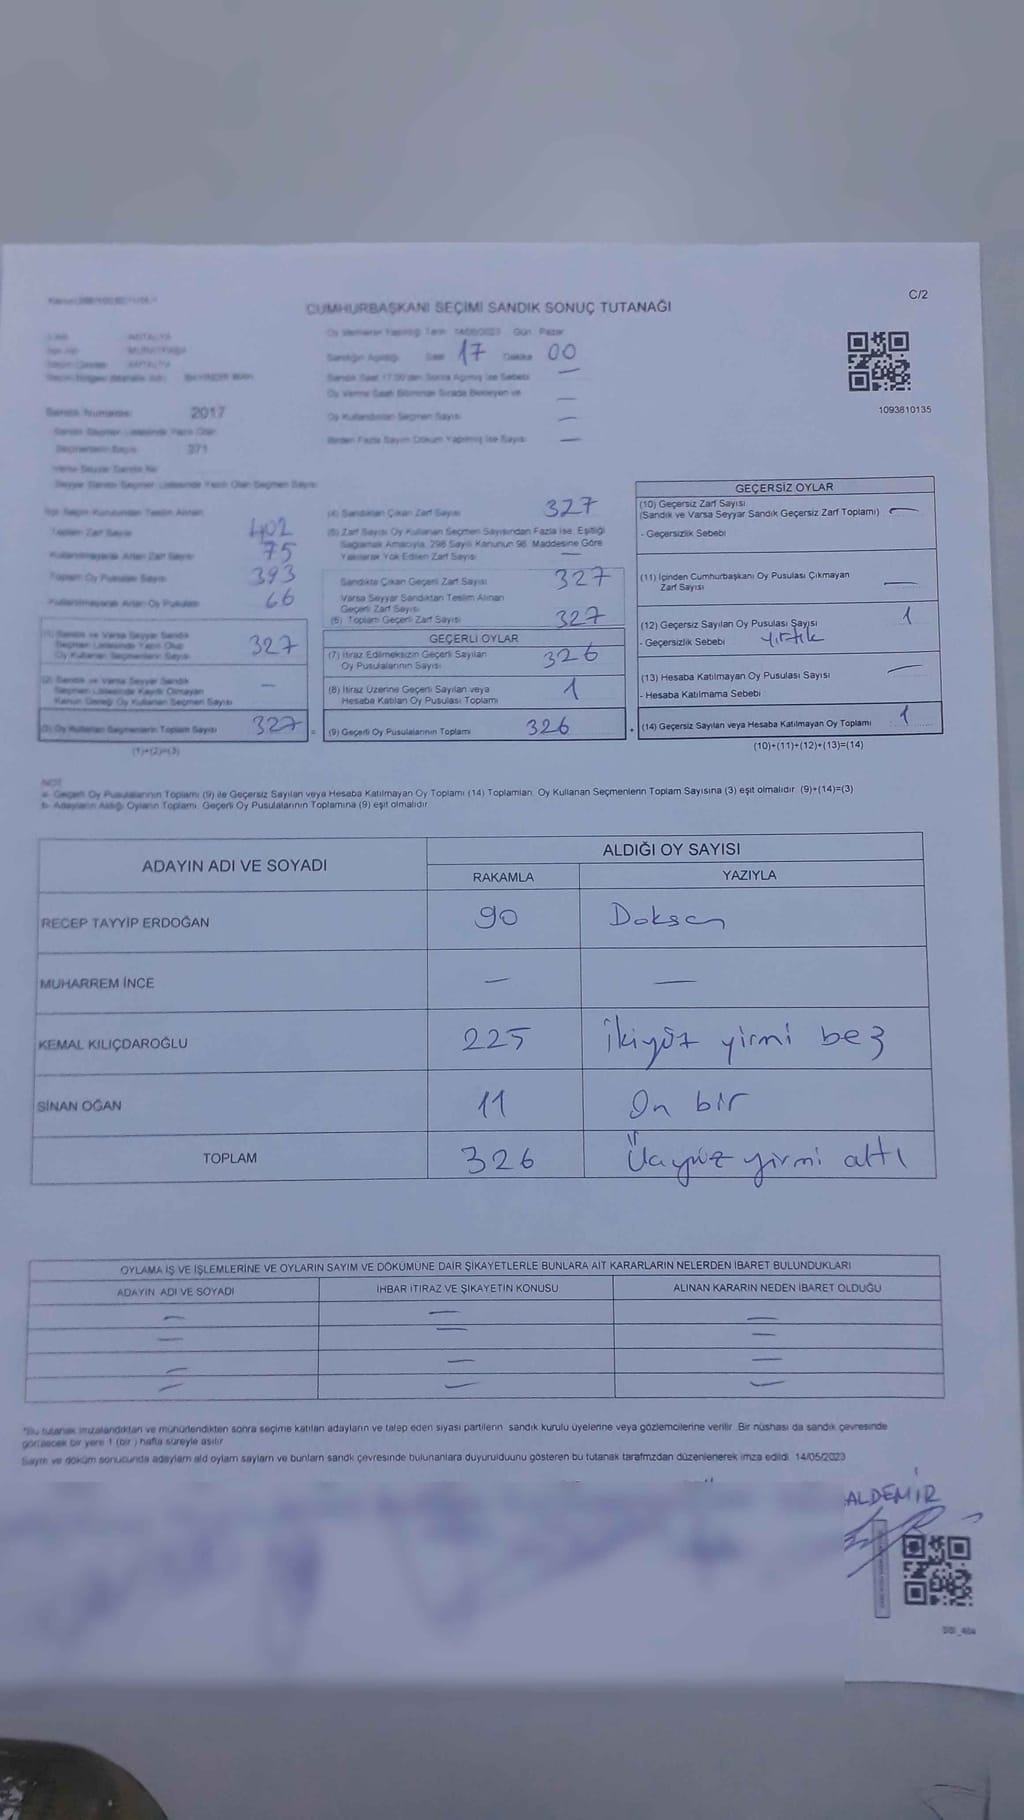 C/2
CUMHURBAŞKANI SEÇİMİ SANDIK SONUÇ TUTANAĞI
Oy Vermenin Yapıldığı Tarih 14/05/2023 Gün Pazar
ANTALYA
MURATPAŞA
ANTALYA
Sandığın Açıldığı Saat 17 Dakika 00
Sandık Saat 17:00'den Sonra Açılmış İse Sebebi —
Oy Verme Saati Bitiminde Sırada Bekleyen ve —
Oy Kullandırılan Seçmen Sayısı —
Birden Fazla Sayım Döküm Yapılmış İse Sayısı —
1093810135
Sandık Numarası 2017
Sandık Seçmen Listesinde Yazılı Olan
Seçmenlerin Sayısı 371
Varsa Seyyar Sandık No
Seyyar Sandık Seçmen Listesinde Yazılı Olan Seçmen Sayısı
İlçe Seçim Kurulundan Teslim Alınan
Toplam Zarf Sayısı 402
Kullanılmayarak Artan Zarf Sayısı 75
Toplam Oy Pusulası Sayısı 393
Kullanılmayarak Artan Oy Pusulası 66
(1) Sandık ve Varsa Seyyar Sandık
Seçmen Listesinde Yazılı Olup
Oy Kullanan Seçmenlerin Sayısı 327
(2) Sandık ve Varsa Seyyar Sandık
Seçmen Listesinde Kayıtlı Olmayan
Kanun Gereği Oy Kullanan Seçmen Sayısı —
(3) Oy Kullanan Seçmenlerin Toplam Sayısı 327 =
(1)+(2)=(3)
(4) Sandıktan Çıkan Zarf Sayısı 327
(5) Zarf Sayısı Oy Kullanan Seçmen Sayısından Fazla İse, Eşitliği
Sağlamak Amacıyla, 298 Sayılı Kanunun 98. Maddesine Göre
Yakılarak Yok Edilen Zarf Sayısı —
Sandıkta Çıkan Geçerli Zarf Sayısı 327
Varsa Seyyar Sandıktan Teslim Alınan
Geçerli Zarf Sayısı
(6) Toplam Geçerli Zarf Sayısı 327
GEÇERLİ OYLAR
(7) İtiraz Edilmeksizin Geçerli Sayılan
Oy Pusulalarının Sayısı 326
(8) İtiraz Üzerine Geçerli Sayılan veya
Hesaba Katılan Oy Pusulası Toplamı 1
(9) Geçerli Oy Pusulalarının Toplamı 326 +
GEÇERSİZ OYLAR
(10) Geçersiz Zarf Sayısı
(Sandık ve Varsa Seyyar Sandık Geçersiz Zarf Toplamı) —
- Geçersizlik Sebebi
(11) İçinden Cumhurbaşkanı Oy Pusulası Çıkmayan
Zarf Sayısı —
(12) Geçersiz Sayılan Oy Pusulası Sayısı 1
- Geçersizlik Sebebi yırtık
(13) Hesaba Katılmayan Oy Pusulası Sayısı —
- Hesaba Katılmama Sebebi
(14) Geçersiz Sayılan veya Hesaba Katılmayan Oy Toplamı 1
(10)+(11)+(12)+(13)=(14)
NOT
a- Geçerli Oy Pusulalarının Toplamı (9) ile Geçersiz Sayılan veya Hesaba Katılmayan Oy Toplamı (14) Toplamları, Oy Kullanan Seçmenlerin Toplam Sayısına (3) eşit olmalıdır. (9)+(14)=(3)
b- Adayların Aldığı Oyların Toplamı, Geçerli Oy Pusulalarının Toplamına (9) eşit olmalıdır.
ADAYIN ADI VE SOYADI
ALDIĞI OY SAYISI
RAKAMLA YAZIYLA
RECEP TAYYİP ERDOĞAN 90 Doksan
MUHARREM İNCE — —
KEMAL KILIÇDAROĞLU 225 İkiyüz yirmi beş
SİNAN OĞAN 11 On bir
TOPLAM 326 Üçyüz yirmi altı
OYLAMA İŞ VE İŞLEMLERİNE VE OYLARIN SAYIM VE DÖKÜMÜNE DAİR ŞİKAYETLERLE BUNLARA AİT KARARLARIN NELERDEN İBARET BULUNDUKLARI
ADAYIN ADI VE SOYADI İHBAR İTİRAZ VE ŞİKAYETİN KONUSU ALINAN KARARIN NEDEN İBARET OLDUĞU
— — —
— — —
— — —
— — —
*Bu tutanak imzalandıktan ve mühürlendikten sonra seçime katılan adayların ve talep eden siyasi partilerin sandık kurulu üyelerine veya gözlemcilerine verilir. Bir nüshası da sandık çevresinde
görülecek bir yere 1 (bir ) hafta süreyle asılır
Sayım ve döküm sonucunda adayların ald oyların sayları ve bunların sandk çevresinde bulunanlara duyurulduunu gösteren bu tutanak tarafmzdan düzenlenerek imza edildi. 14/05/2023
ALDEMİR